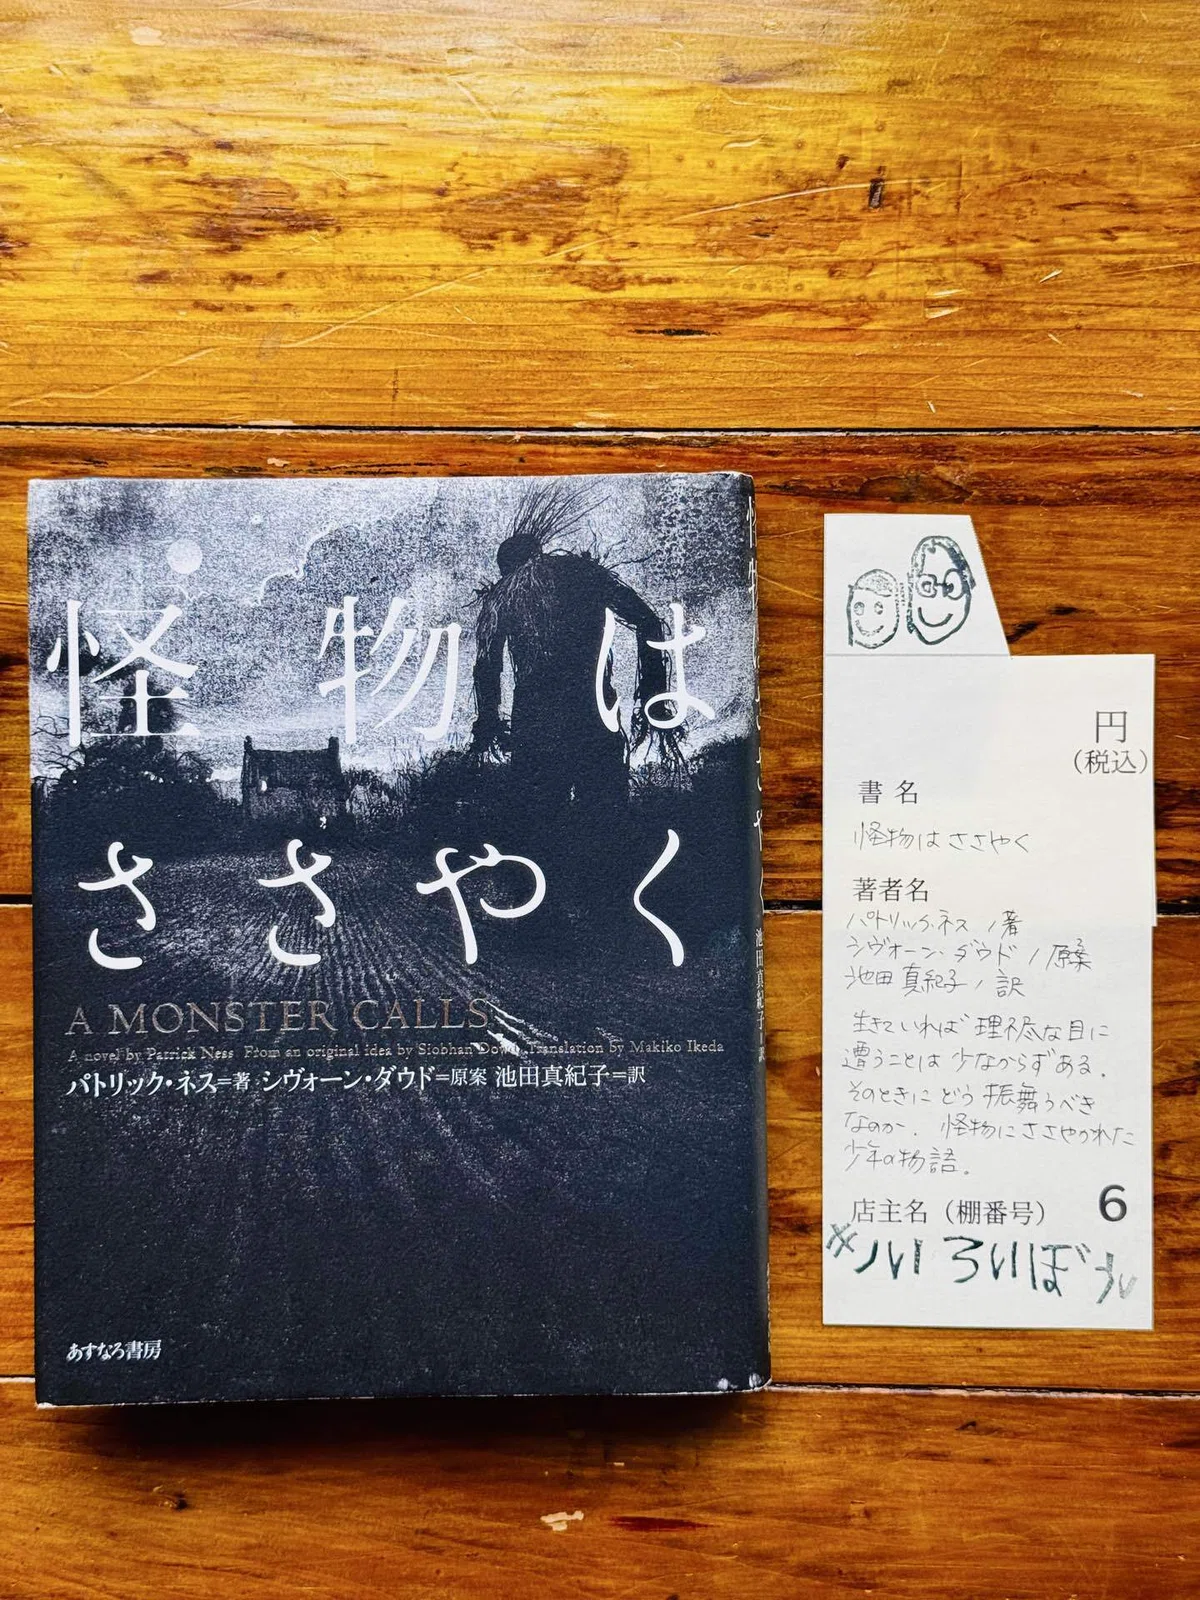 怪物は
ささやく
A MONSTER CALLS
A novel by Patrick Ness From an original idea by Siobhan Dowd Translation by Makiko Ikeda
パトリック・ネス=著 シヴォーン・ダウド=原案 池田真紀子=訳
あすなろ書房
池田真紀子=訳
円
(税込)
書名
怪物はささやく
著者名
パトリック・ネス/著
シヴォーン・ダウド/原案
池田真紀子/訳
生きていれば理不尽な目に
遭うことは少なからずある.
そのときにどう振舞うべき
なのか. 怪物にささやかれた
少年の物語。
店主名(棚番号) 6